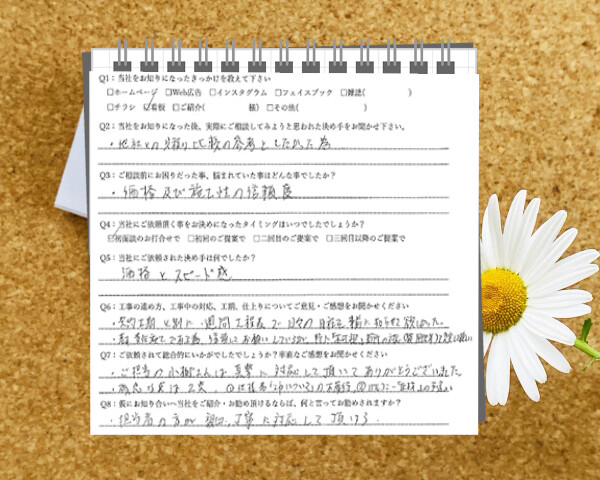 Q1：当社をお知りになったきっかけを教えて下さい
□ホームページ □Web広告 □インスタグラム □フェイスブック □雑誌( )
□チラシ ☑看板 □ご紹介( 様) □その他( )
Q2：当社をお知りになった後、実際にご相談してみようと思われた決め手をお聞かせ下さい。
・他社との見積り比較の参考としたかった為
Q3：ご相談前にお困りだった事、悩まれていた事はどんな事でしたか？
・価格及び施工性の信頼度
Q4：当社にご依頼頂く事をお決めになったタイミングはいつでしたでしょうか？
☑初面談のお打合せで □初回のご提案で □二回目のご提案で □三回目以降のご提案で
Q5：当社にご依頼された決め手は何でしたか？
価格とスピード感
Q6：工事の進め方、工事中の対応、工期、仕上りについてご意見・ご感想をお聞かせください
・契約工期と別に一週間工程表で日々の
Q7：ご依頼されて総合的にいかがでしたでしょうか？率直なご感想をお聞かせください
・ご担当の小柳さんは真摯に対応して頂いてありがとうございました
Q8：仮にお知り合いへ当社をご紹介・お勧め頂けるならば、何と言ってお勧めされますか？
・担当者の方が親切、丁寧に対応して頂ける